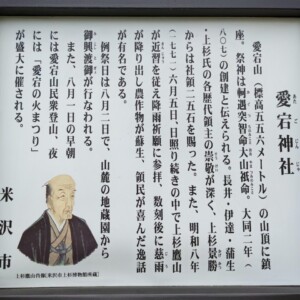 あたごじんじゃ
愛宕神社
愛宕山(標高五五六メートル)の山頂に鎮
座。祭神は軻遇突智命大山祇命。大同二年(
八〇七)の創建と伝えられる。長井・伊達・蒲生
・上杉氏の各歴代領主の崇敬が深く、上杉景勝
からは社領二五石を賜った。また、明和八年
(一七七一)六月五日、日照り続きの中で上杉鷹山
が近習を従え降雨祈願に参拝、数刻後に慈雨
が降り出し農作物が蘇生、領民が喜んだ逸話
が有名である。
例祭日は八月二日で、山麓の地蔵園から
御輿渡御が行なわれる。
また、八月一日の早朝
には愛宕山民衆登山、夜
には「愛宕の火まつり」
が盛大に催される。
米沢市
上杉鷹山肖像「米沢市上杉博物館所蔵」